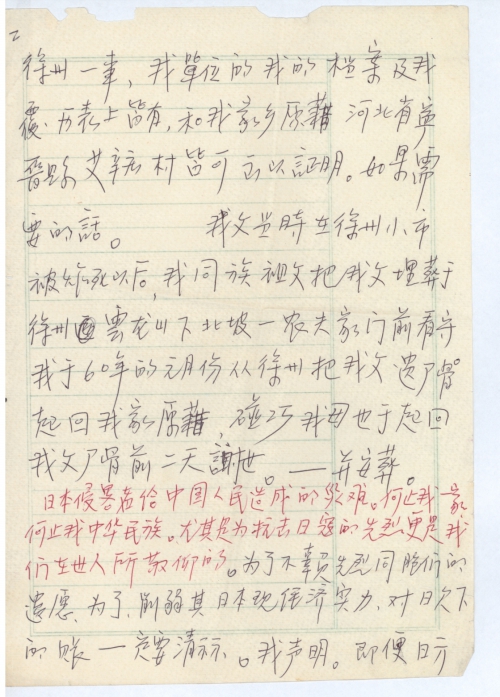 2
徐州一事，我單位的我的档案及我
履历表上皆有，和我家乡原藉 河北省宁
晋縣 艾辛村皆可 以証明。如果需
要的話。 我父当時在徐州小市
被炸死以后，我同族祖父把我父埋葬于
徐州 雲龙山下北坡一农夫家门前看守
我于60年的元月份从徐州把我父遗尸骨
起回我家原藉，碰巧我母也于起回
我父尸骨前二天謝世。——并安葬。
日本侵害者给中国人民造成的 难。何止我一家
何止我中华民族。尤其是为抗击日寇的先烈更是我
们在世人所敬仰的。为了不負先烈同胞们的
遗愿，为了削弱其日本现经济实力，对日欠下
的账一定要清 。我声明。即便日方